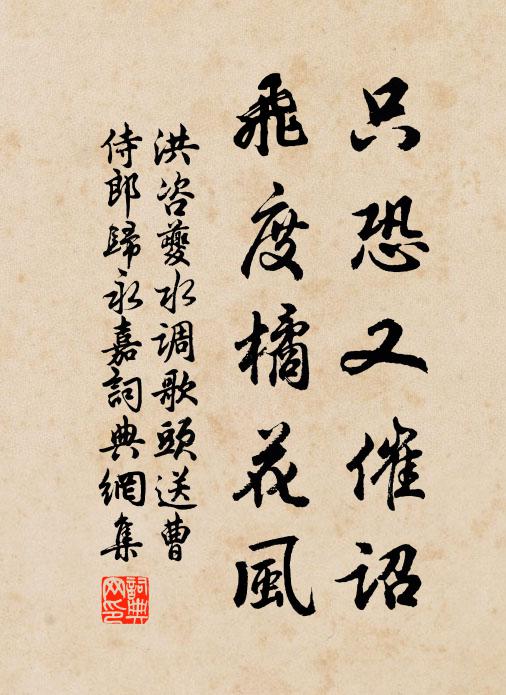 只恐又催詔
飛度橘花風
洪咨夔水調歌頭送曹
侍郎歸永嘉詞典網集
詞典
网印